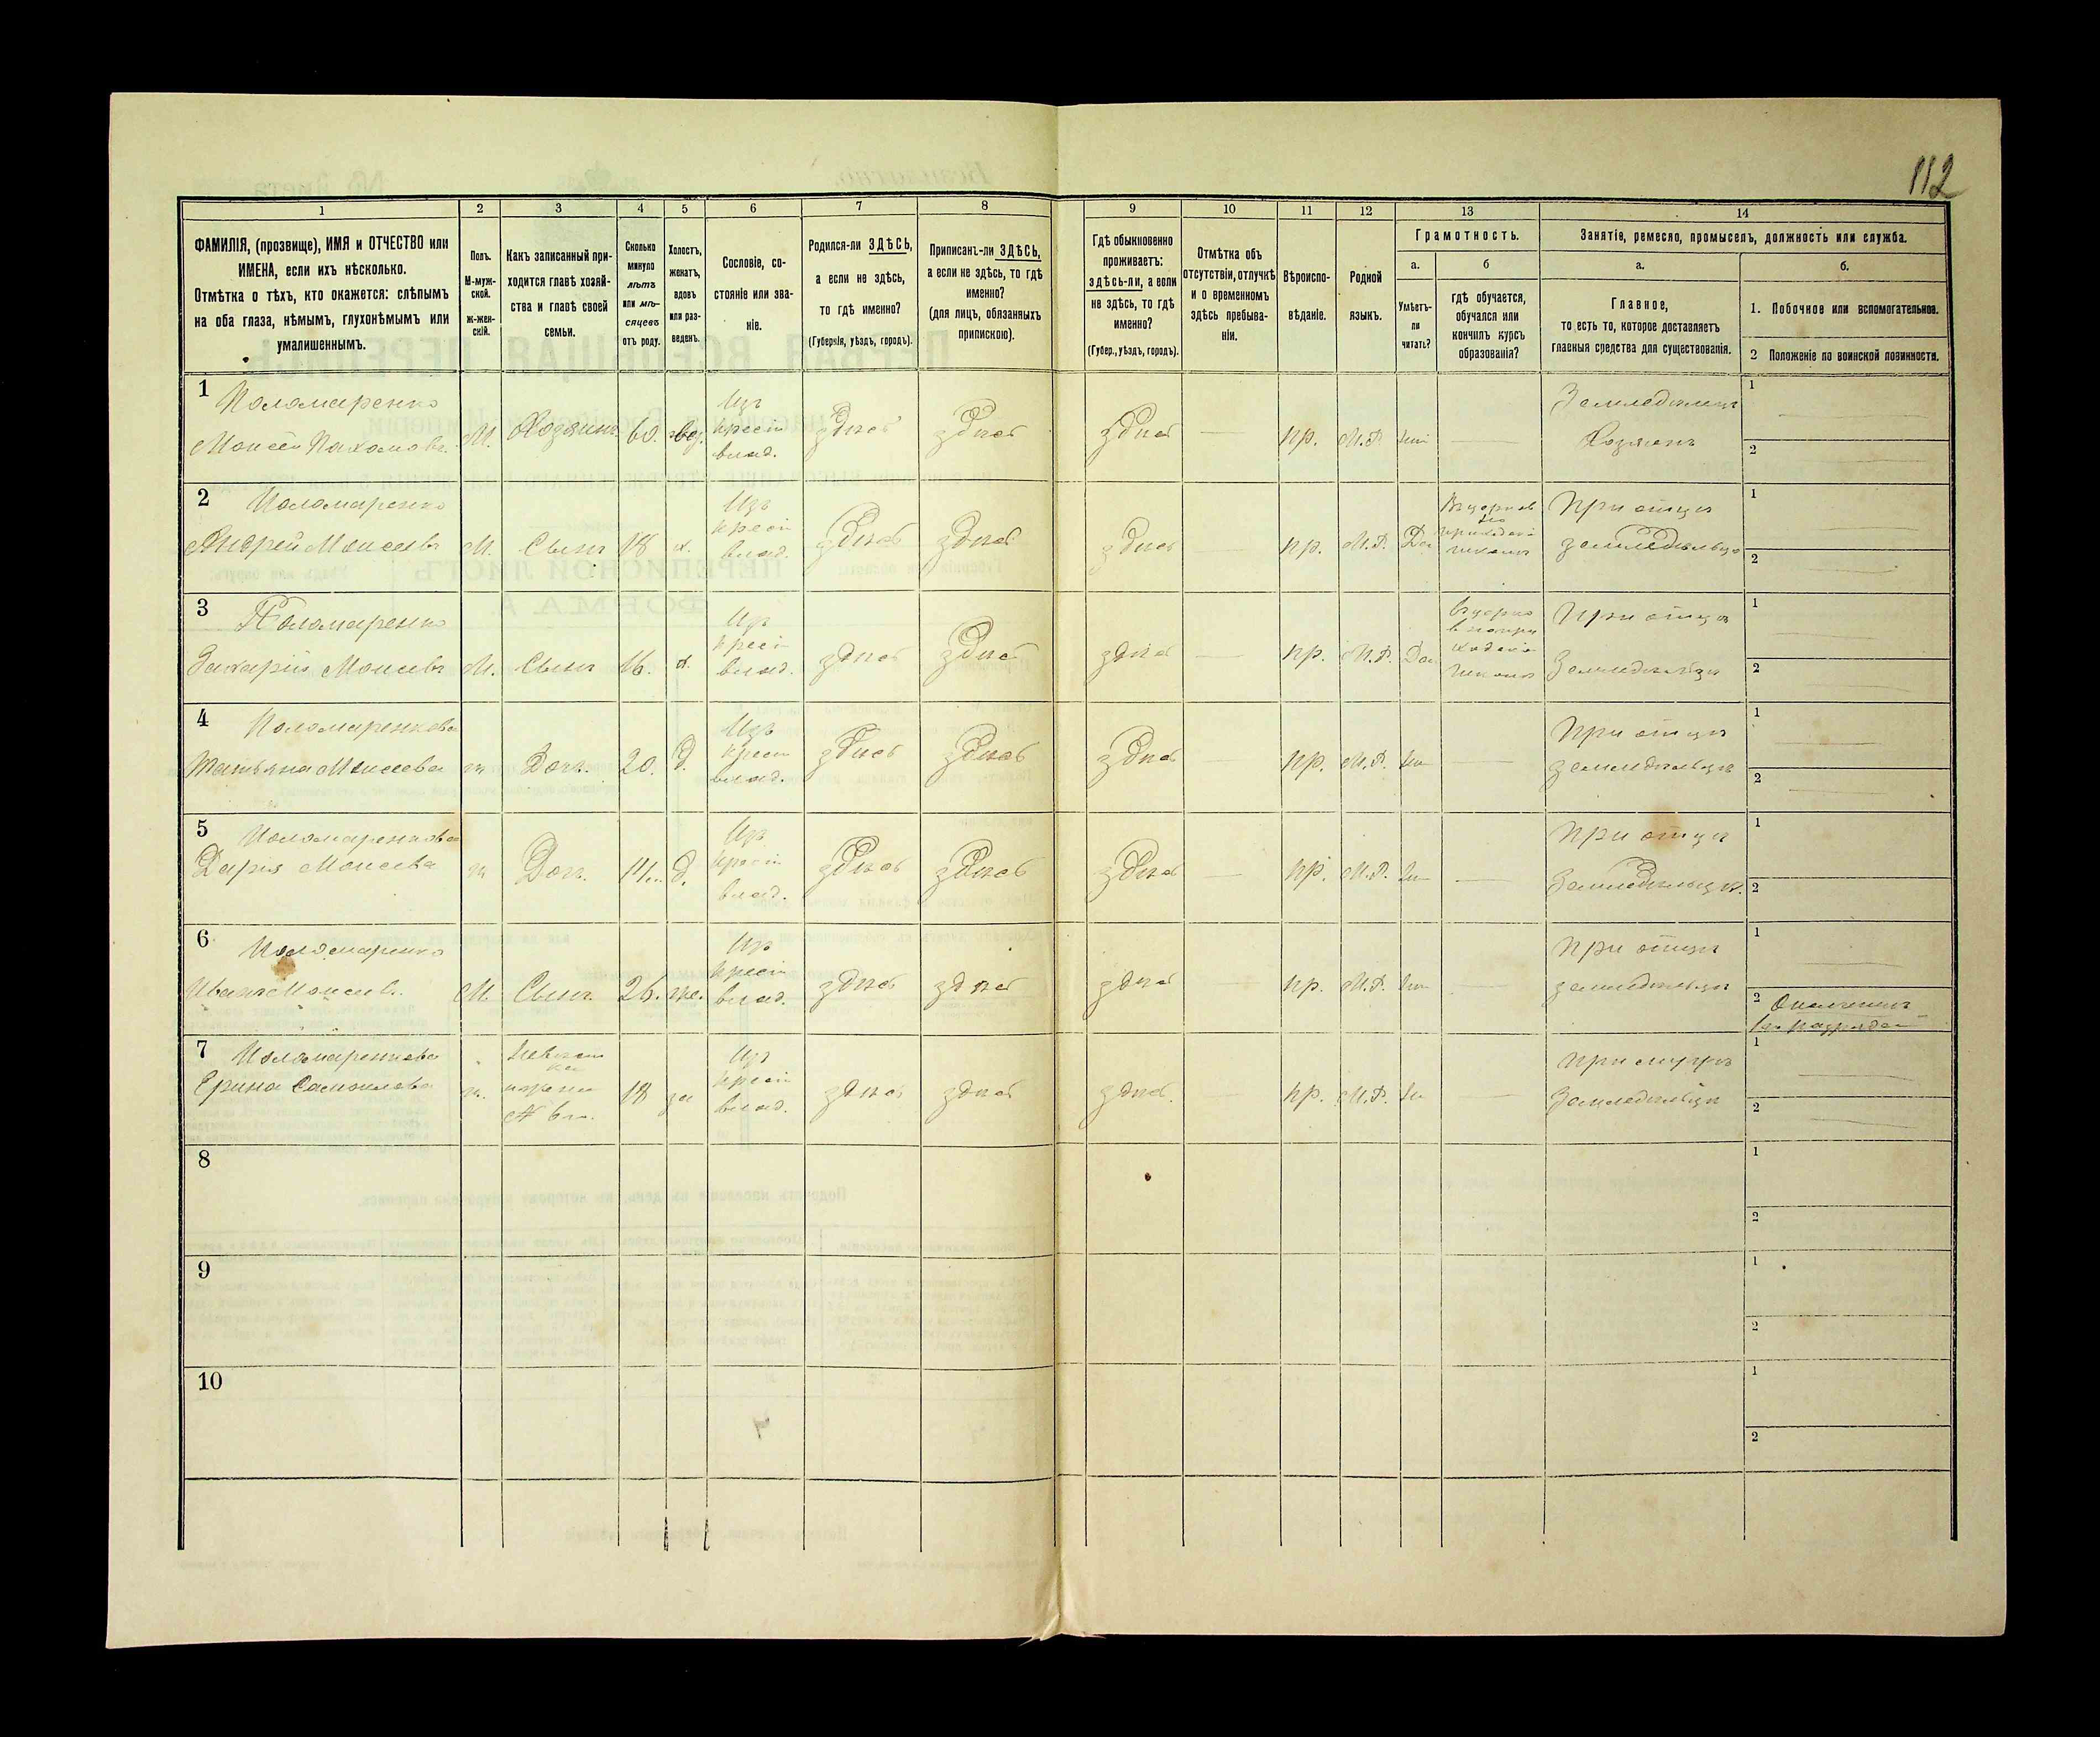 112
1 2 3 4 5 6 7 8 9 10 11 12 13 14
ФАМИЛІЯ, (прозвище), ИМЯ и ОТЧЕСТВО или
ИМЕНА, если ихъ нѣсколько.
Отмѣтка о тѣхъ, кто окажется: слѣпымъ
на оба глаза, нѣмымъ, глухонѣмымъ или
умалишеннымъ.
Полъ.
М-муж-
ской.
Ж-жен-
скій.
Какъ записанный при-
ходится главѣ хозяй-
ства и главѣ своей
семьи.
Сколько
минуло
лѣтъ
или мѣ-
сяцевъ
отъ роду.
Холостъ,
женатъ,
вдовъ
или раз-
веденъ.
Сословіе, со-
стояніе или зва-
ніе.
Родился-ли ЗДѢСЬ,
а если не здѣсь,
то гдѣ именно?
(Губернія, уѣздъ, городъ).
Приписанъ-ли ЗДѢСЬ,
а если не здѣсь, то гдѣ
именно?
(для лицъ, обязанныхъ
припискою).
Гдѣ обыкновенно
проживаетъ:
здѣсь-ли, а если
не здѣсь, то гдѣ
именно?
(Губер., уѣздъ, городъ).
Отмѣтка объ
отсутствіи, отлучкѣ
и о временномъ
здѣсь пребыва-
ніи.
Вѣроиспо-
вѣданіе.
Родной
языкъ.
Грамотность.
а.
Умѣетъ-
ли
читать?
б
гдѣ обучается,
обучался или
кончилъ курсъ
образованія?
Занятіе, ремесло, промыселъ, должность или служба.
а.
Главное,
то есть то, которое доставляетъ
главныя средства для существованія.
б.
1. Побочное или вспомогательное.
2 Положеніе по воинской повинности.
1
Поломаренко
Моисей Пахомовъ
М.
Хозяинъ
60.
Изъ
крест
влад.
здѣсь
здѣсь
здѣсь
пр.
М.Р.
Земледѣлецъ
Хозяинъ
1
2
2
Поломаренко
Андрей Моисеевъ
М.
Сынъ
18
х.
Изъ
крест
влад.
здѣсь
здѣсь
здѣсь
пр.
М.Р.
Да
школѣ
При отцѣ
земледѣльцѣ
1
2
3
Поломаренко
Захарій Моисеевъ
М.
Сынъ
16.
х.
Изъ
крест
влад.
здѣсь
здѣсь
здѣсь
пр.
М.Р.
Да
школѣ
При отцѣ
Земледѣльцѣ
1
2
4
Поломаренкова
Татьяна Моисеева
ж
Дочь.
20.
Д.
Изъ
крест
влад.
здѣсь
здѣсь
здѣсь
пр.
М.Р.
При отцѣ
земледѣльцѣ
1
2
5
Поломаренкова
Дарія Моисеева
ж
Дочь.
14
Д.
Изъ
крест
влад.
здѣсь
здѣсь
здѣсь
пр.
М.Р.
При отцѣ
Земледѣльцѣ.
1
2
6
Поломаренко
Иванъ Моисеев.
М.
Сынъ.
26.
же.
Изъ
крест
влад.
здѣсь
здѣсь
здѣсь
пр.
М.Р.
При отцѣ
земледѣльцѣ
1
2
Ополченецъ
7
Поломаренкова
Ерина Самойлова
ж.
Невѣст
ка
18
за
Изъ
крест
влад.
здѣсь
здѣсь
здѣсь.
пр.
М.Р.
При мужѣ
Земледѣльцѣ
1
2
8
1
2
9
1
2
10
1
2